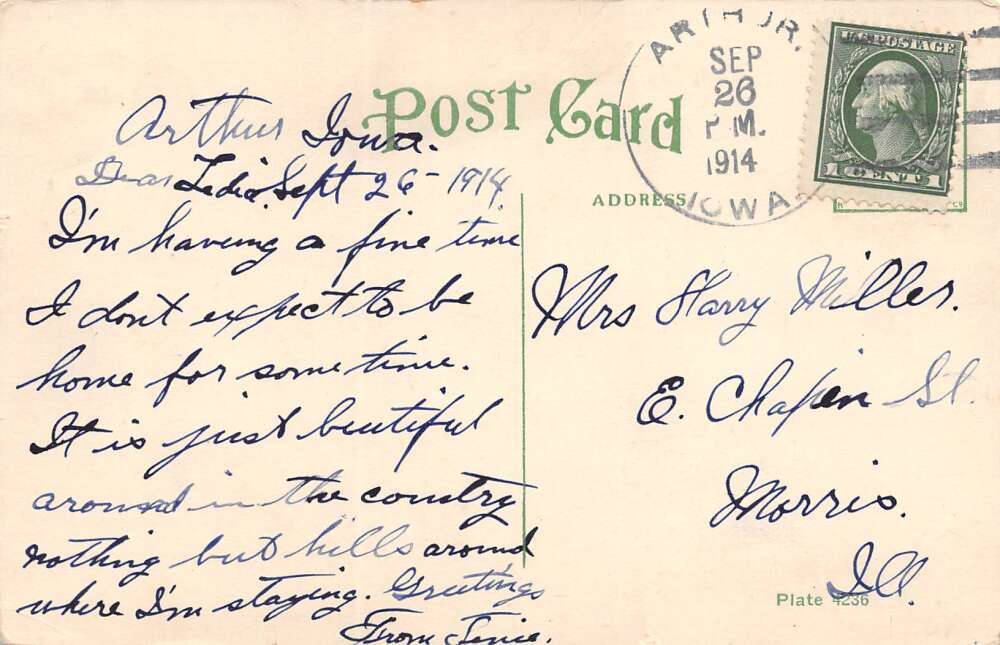 POST CARD
ARTHUR.
SEP
26
P M.
1914
IOWA
U.S. POSTAGE
1 CENT 1
ADDRESS
Arthur Iowa.
Dear Lydia Sept 26-1914
I'm haveing a fine time
I don't expect to be
home for some time.
It is just beutiful
around in the country
nothing but hills around
where I'm staying. Greetings
From
Mrs Harry Miller.
E. Chapin St.
Morris.
Ill.
Plate 4236